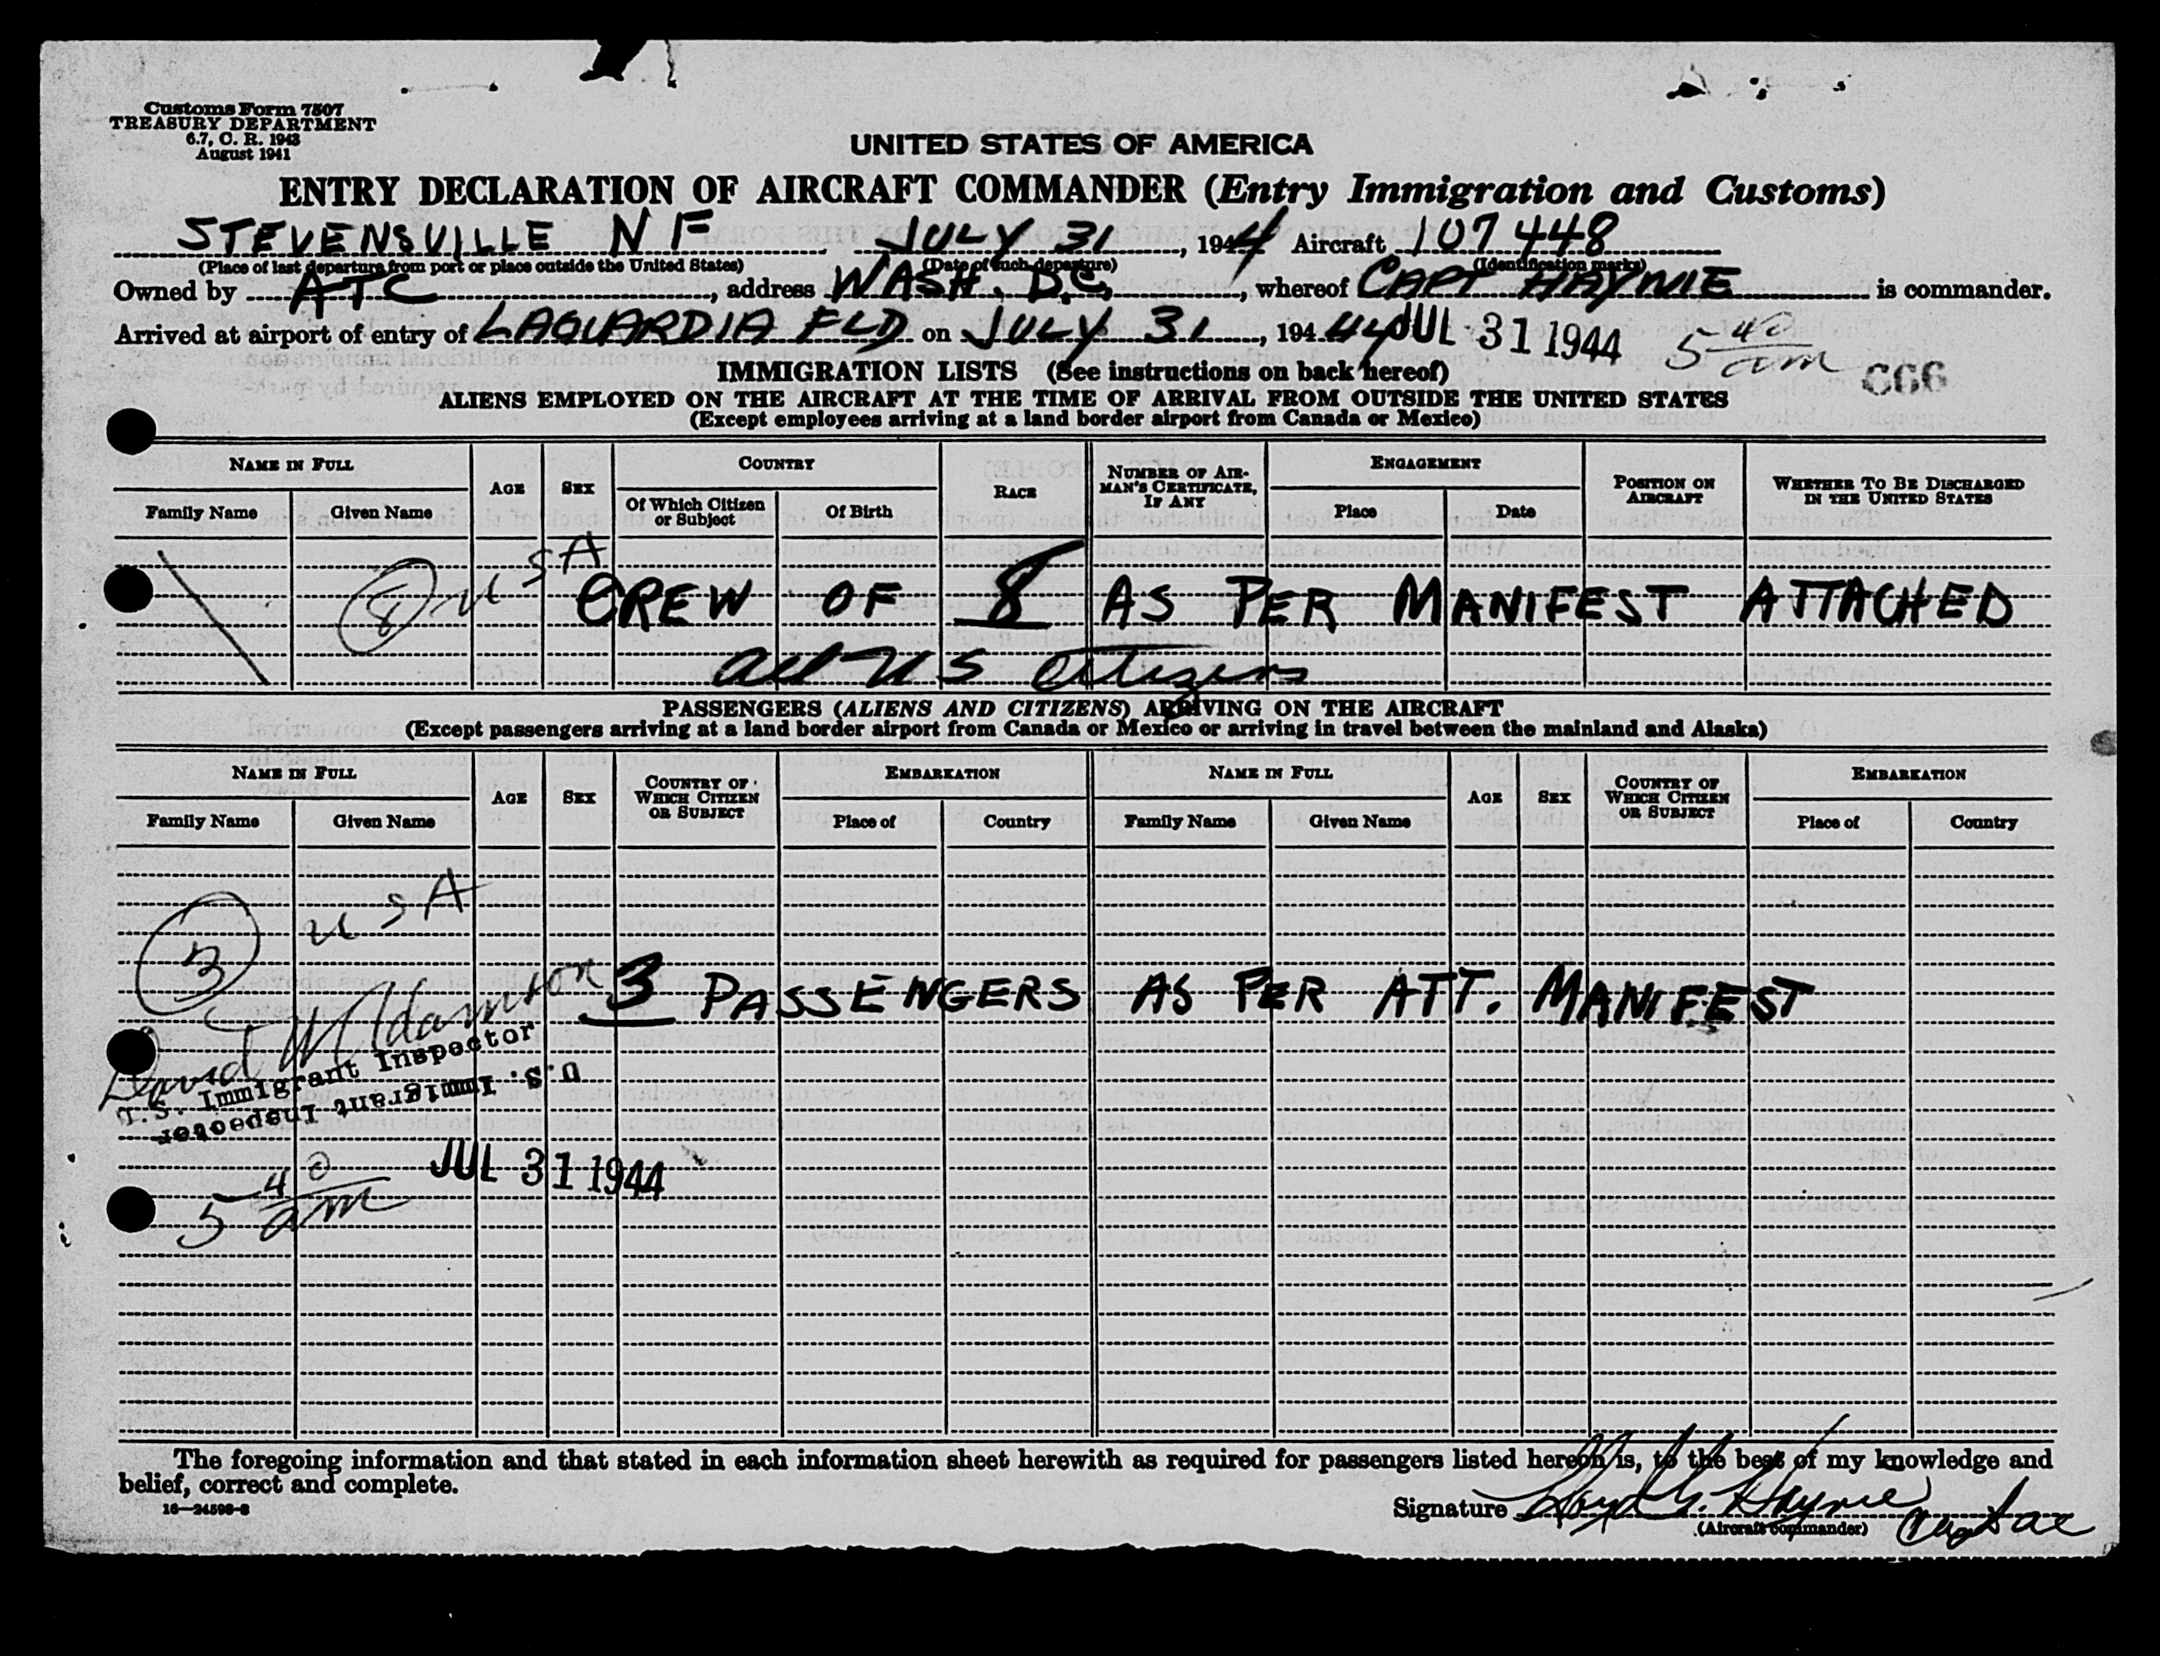 Customs Form 7507
TREASURY DEPARTMENT
6.7, C. R. 1943
August 1941
UNITED STATES OF AMERICA
ENTRY DECLARATION OF AIRCRAFT COMMANDER (Entry Immigration and Customs)
STEVENSVILLE N F JULY 31, 1944 Aircraft 107448
(Place of last departure from port or place outside the United States) (Date of such departure) (Identification marks)
Owned by ATC, address WASH. D.C., whereof CAPT HAYNIE is commander.
Arrived at airport of entry of LAGUARDIA FLD on JULY 31, 194 44 JUL 31 1944 5 40 am
666
IMMIGRATION LISTS (See instructions on back hereof)
ALIENS EMPLOYED ON THE AIRCRAFT AT THE TIME OF ARRIVAL FROM OUTSIDE THE UNITED STATES
(Except employees arriving at a land border airport from Canada or Mexico)
NAME IN FULL AGE SEX COUNTRY RACE NUMBER OF AIRMAN'S CERTIFICATE, IF ANY ENGAGEMENT POSITION ON AIRCRAFT WHETHER TO BE DISCHARGED IN THE UNITED STATES
Family Name Given Name Of Which Citizen or Subject Of Birth Place Date
8 USA
CREW OF 8 AS PER MANIFEST ATTACHED
all US Citizens
PASSENGERS (ALIENS AND CITIZENS) ARRIVING ON THE AIRCRAFT
(Except passengers arriving at a land border airport from Canada or Mexico or arriving in travel between the mainland and Alaska)
NAME IN FULL AGE SEX COUNTRY OF WHICH CITIZEN OR SUBJECT EMBARKATION NAME IN FULL AGE SEX COUNTRY OF WHICH CITIZEN OR SUBJECT EMBARKATION
Family Name Given Name Place of Country Family Name Given Name Place of Country
3 USA
3 PASSENGERS AS PER ATT. MANIFEST
David W Adamson
U.S. Immigrant Inspector
U.S. Immigrant Inspector
JUL 31 1944
5 40 am
The foregoing information and that stated in each information sheet herewith as required for passengers listed hereon is, to the best of my knowledge and
belief, correct and complete.
16—24598-2
Signature G. Haynie
(Aircraft commander)